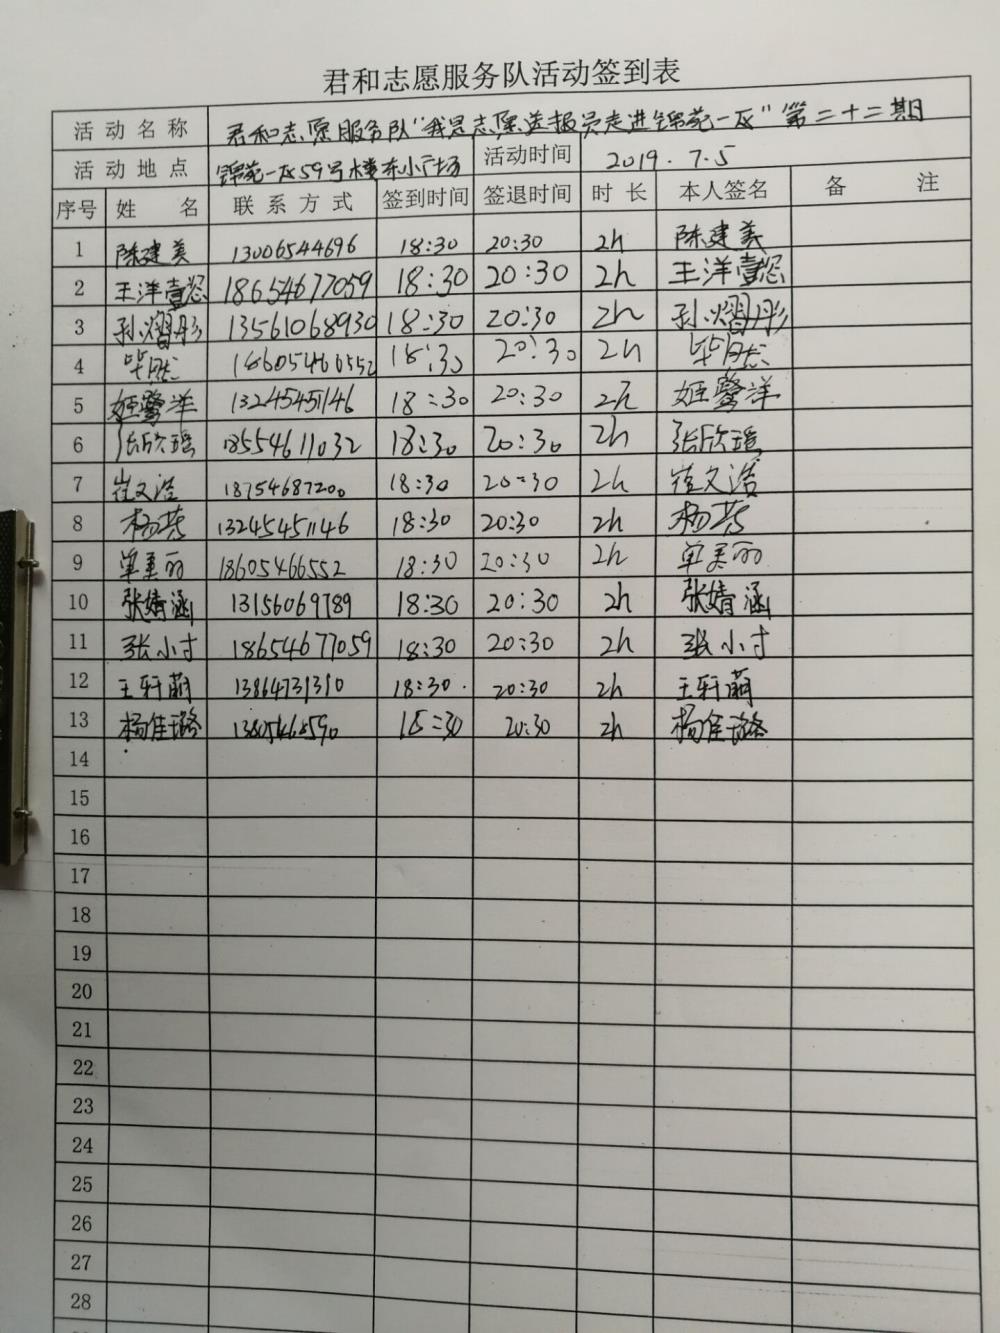 君和志愿服务队活动签到表
活动名称 君和志愿服务队"我是志愿送报员走进锦苑一区"第二十二期
活动地点 锦苑一区59号楼东小广场 活动时间 2019.7.5
序号 姓名 联系方式 签到时间 签退时间 时长 本人签名 备注
1 陈建美 13006544696 18:30 20:30 2h 陈建美
2 王洋壹 18654677059 18:30 20:30 2h 王洋壹
3 孙熠彤 13561068930 18:30 20:30 2h 孙熠彤
4 毕成 18605466552 18:30 20:30 2h 毕成
5 姬馨洋 13245451146 18:30 20:30 2h 姬馨洋
6 张欣瑶 18554611032 18:30 20:30 2h 张欣瑶
7 崔文浩 18754687200 18:30 20:30 2h 崔文浩
8 杨芸 13245451146 18:30 20:30 2h 杨芸
9 单美丽 18605466552 18:30 20:30 2h 单美丽
10 张婧涵 13156069789 18:30 20:30 2h 张婧涵
11 张小寸 18654677059 18:30 20:30 2h 张小寸
12 王轩萌 13864731390 18:30 20:30 2h 王轩萌
13 杨佳璐 18:30 20:30 2h 杨佳璐
14
15
16
17
18
19
20
21
22
23
24
25
26
27
28